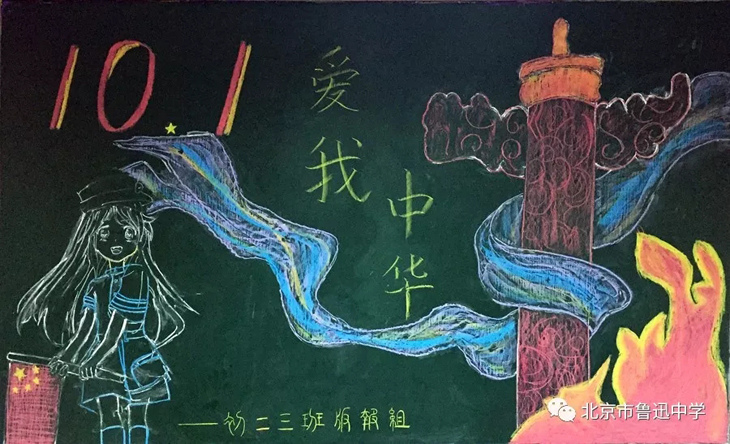 10.1
爱我
中华
——初二三班版报组
北京市鲁迅中学